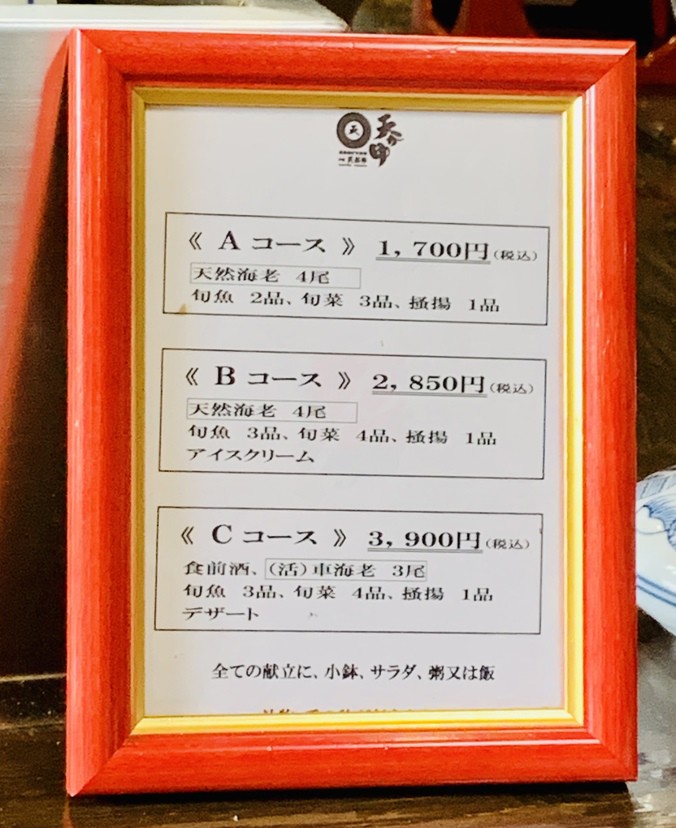 天
《 A コース 》 1,700円(税込)
天然海老 4尾
旬魚 2品、旬菜 3品、掻揚 1品
《 B コース 》 2,850円(税込)
天然海老 4尾
旬魚 3品、旬菜 4品、掻揚 1品
アイスクリーム
《 C コース 》 3,900円(税込)
食前酒、(活)車海老 3尾
旬魚 3品、旬菜 4品、掻揚 1品
デザート
全ての献立に、小鉢、サラダ、粥又は飯